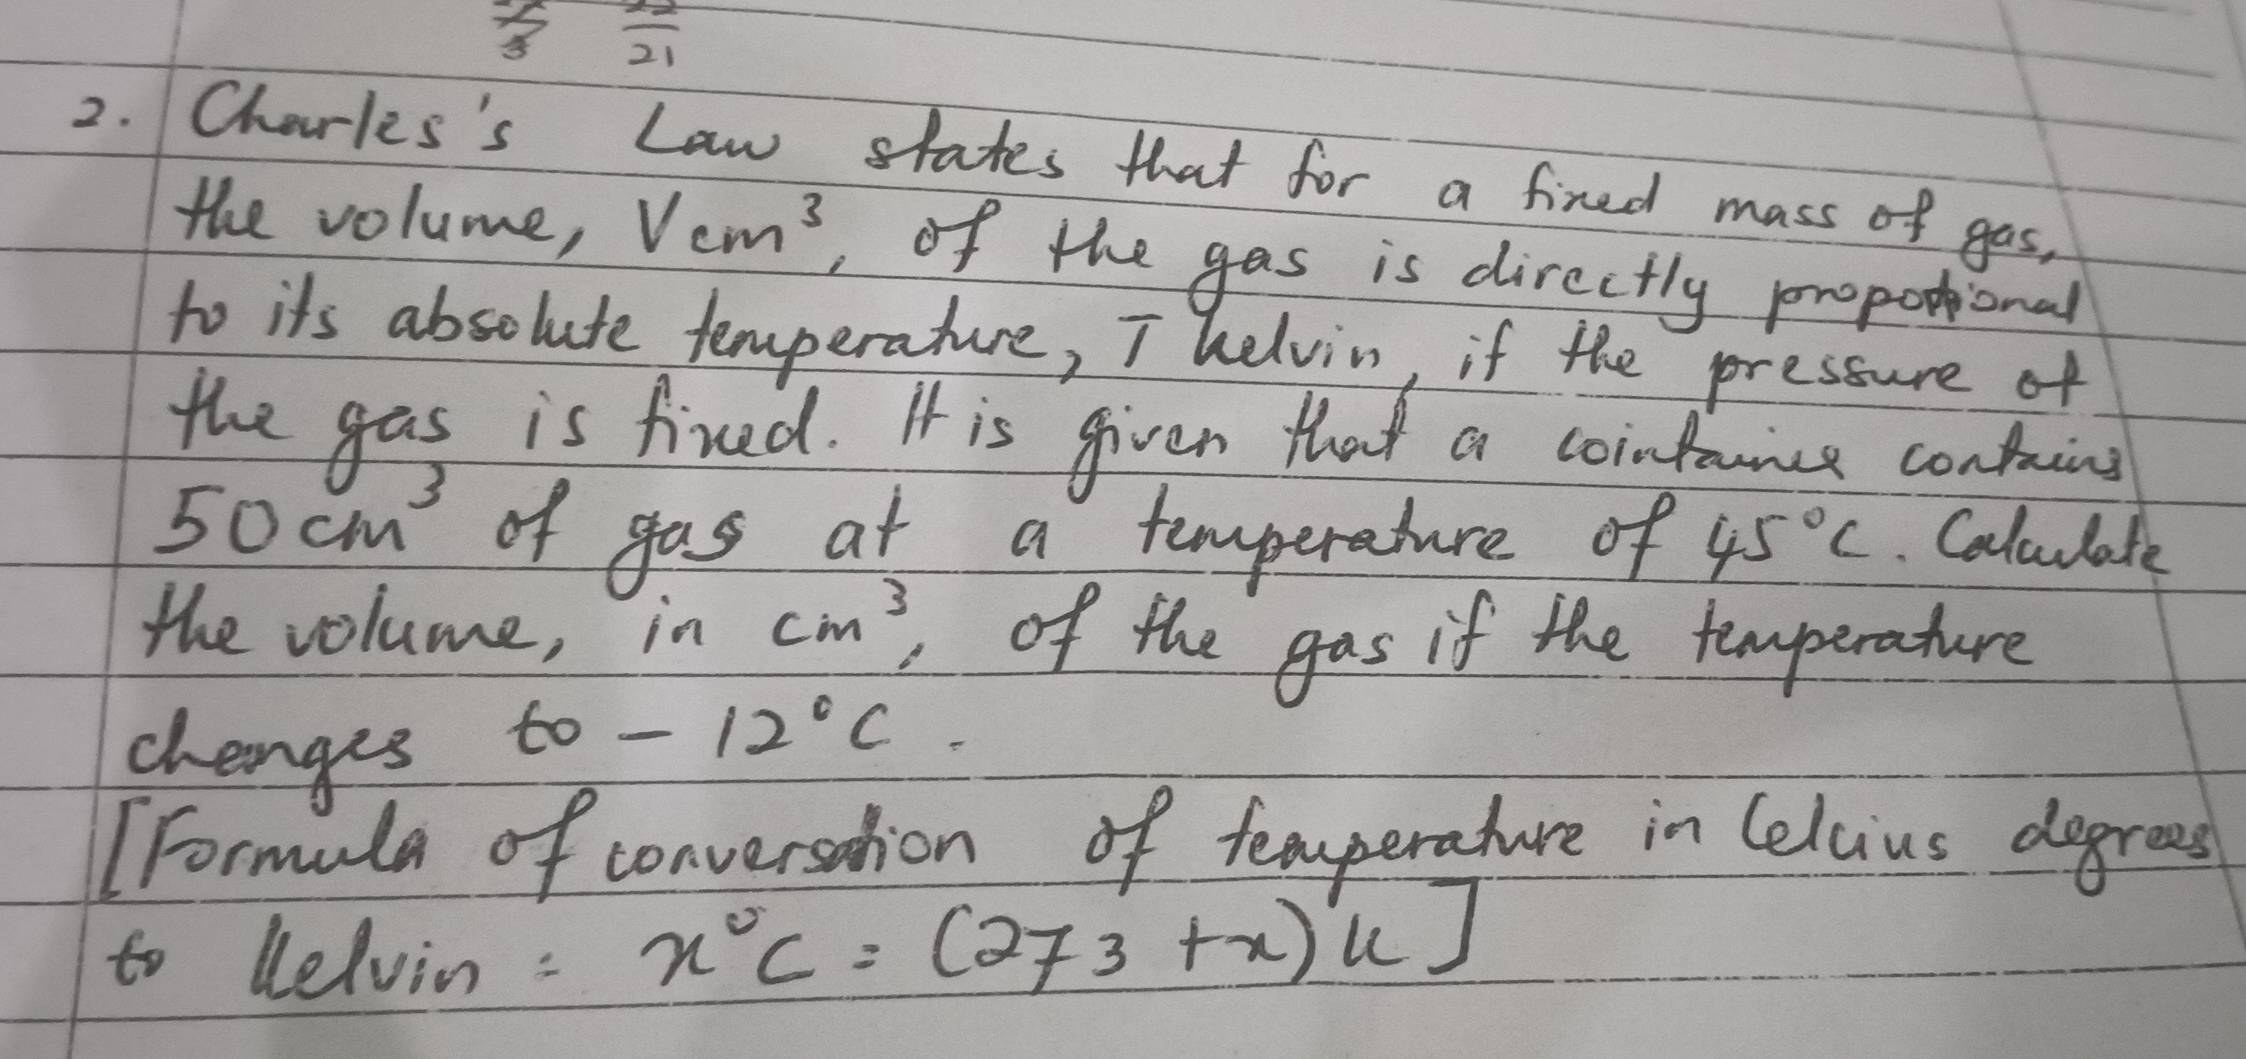 21
2. Charles's Law states that for a fixed mass of gas,
the volume, V cm³, of the gas is directly proportional
to its absolute temperature, T kelvin, if the pressure of
the gas is fixed. It is given that a cointainer contains
50 cm³ of gas at a temperature of 45°C. Calculate
the volume, in cm³, of the gas if the temperature
changes to - 12°C.
[Formula of conversation of temperature in Celcius degrees
to kelvin : x°C = (273 + x) K]